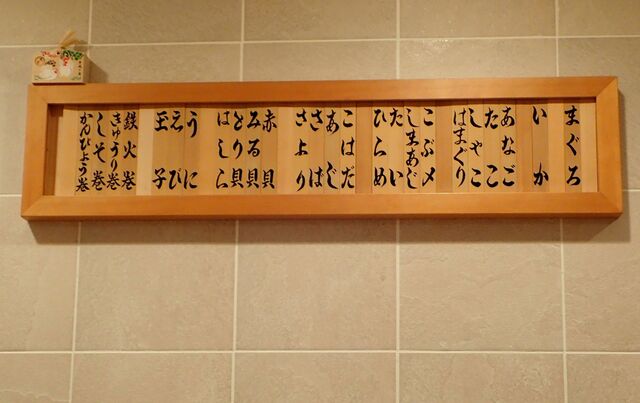 まぐろ
いか
あなご
たこ
しゃこ
はまぐり
こぶ〆
しまあじ
たい
ひらめ
こはだ
あじ
さば
さより
赤貝
みる貝
とり貝
はしら
うに
えび
玉子
鉄火巻
きゅうり巻
しそ巻
かんぴょう巻